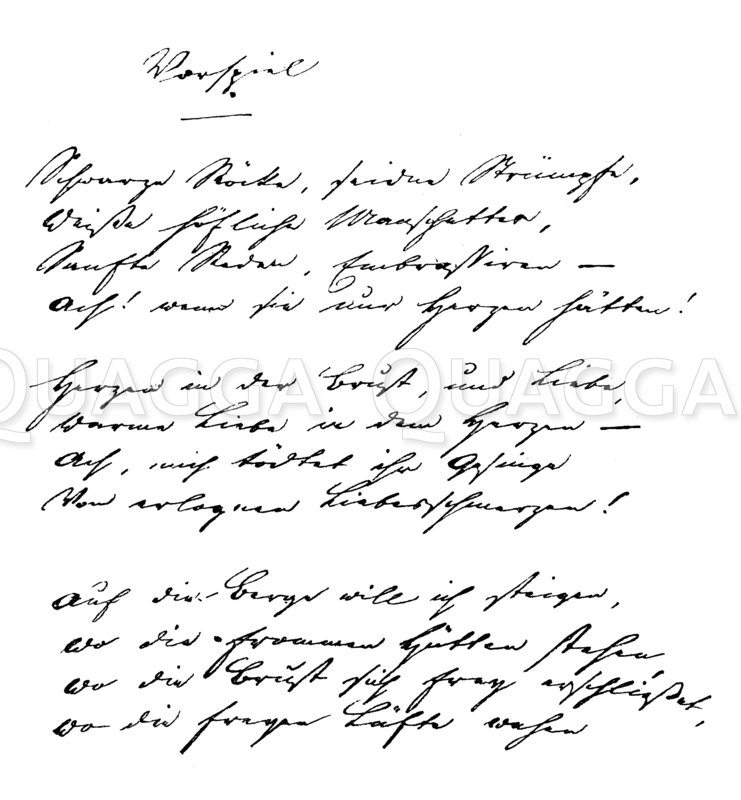 Vorspiel
Schwarze Röcke, seidne Strümpfe,
Weiße höfliche Manschetten,
Sanfte Reden, Embrassiren —
Ach! wenn sie nur Herzen hätten!
QUAGGA QUAGGA
Herzen in der Brust, und Liebe,
Warme Liebe in dem Herzen —
Ach, mich tödtet ihr Gesinge
Von erlognen Liebesschmerzen!
Auf die Berge will ich steigen,
wo die frommen Hütten stehen,
wo die Brust sich frey erschließet,
wo die freyen Lüfte wehen